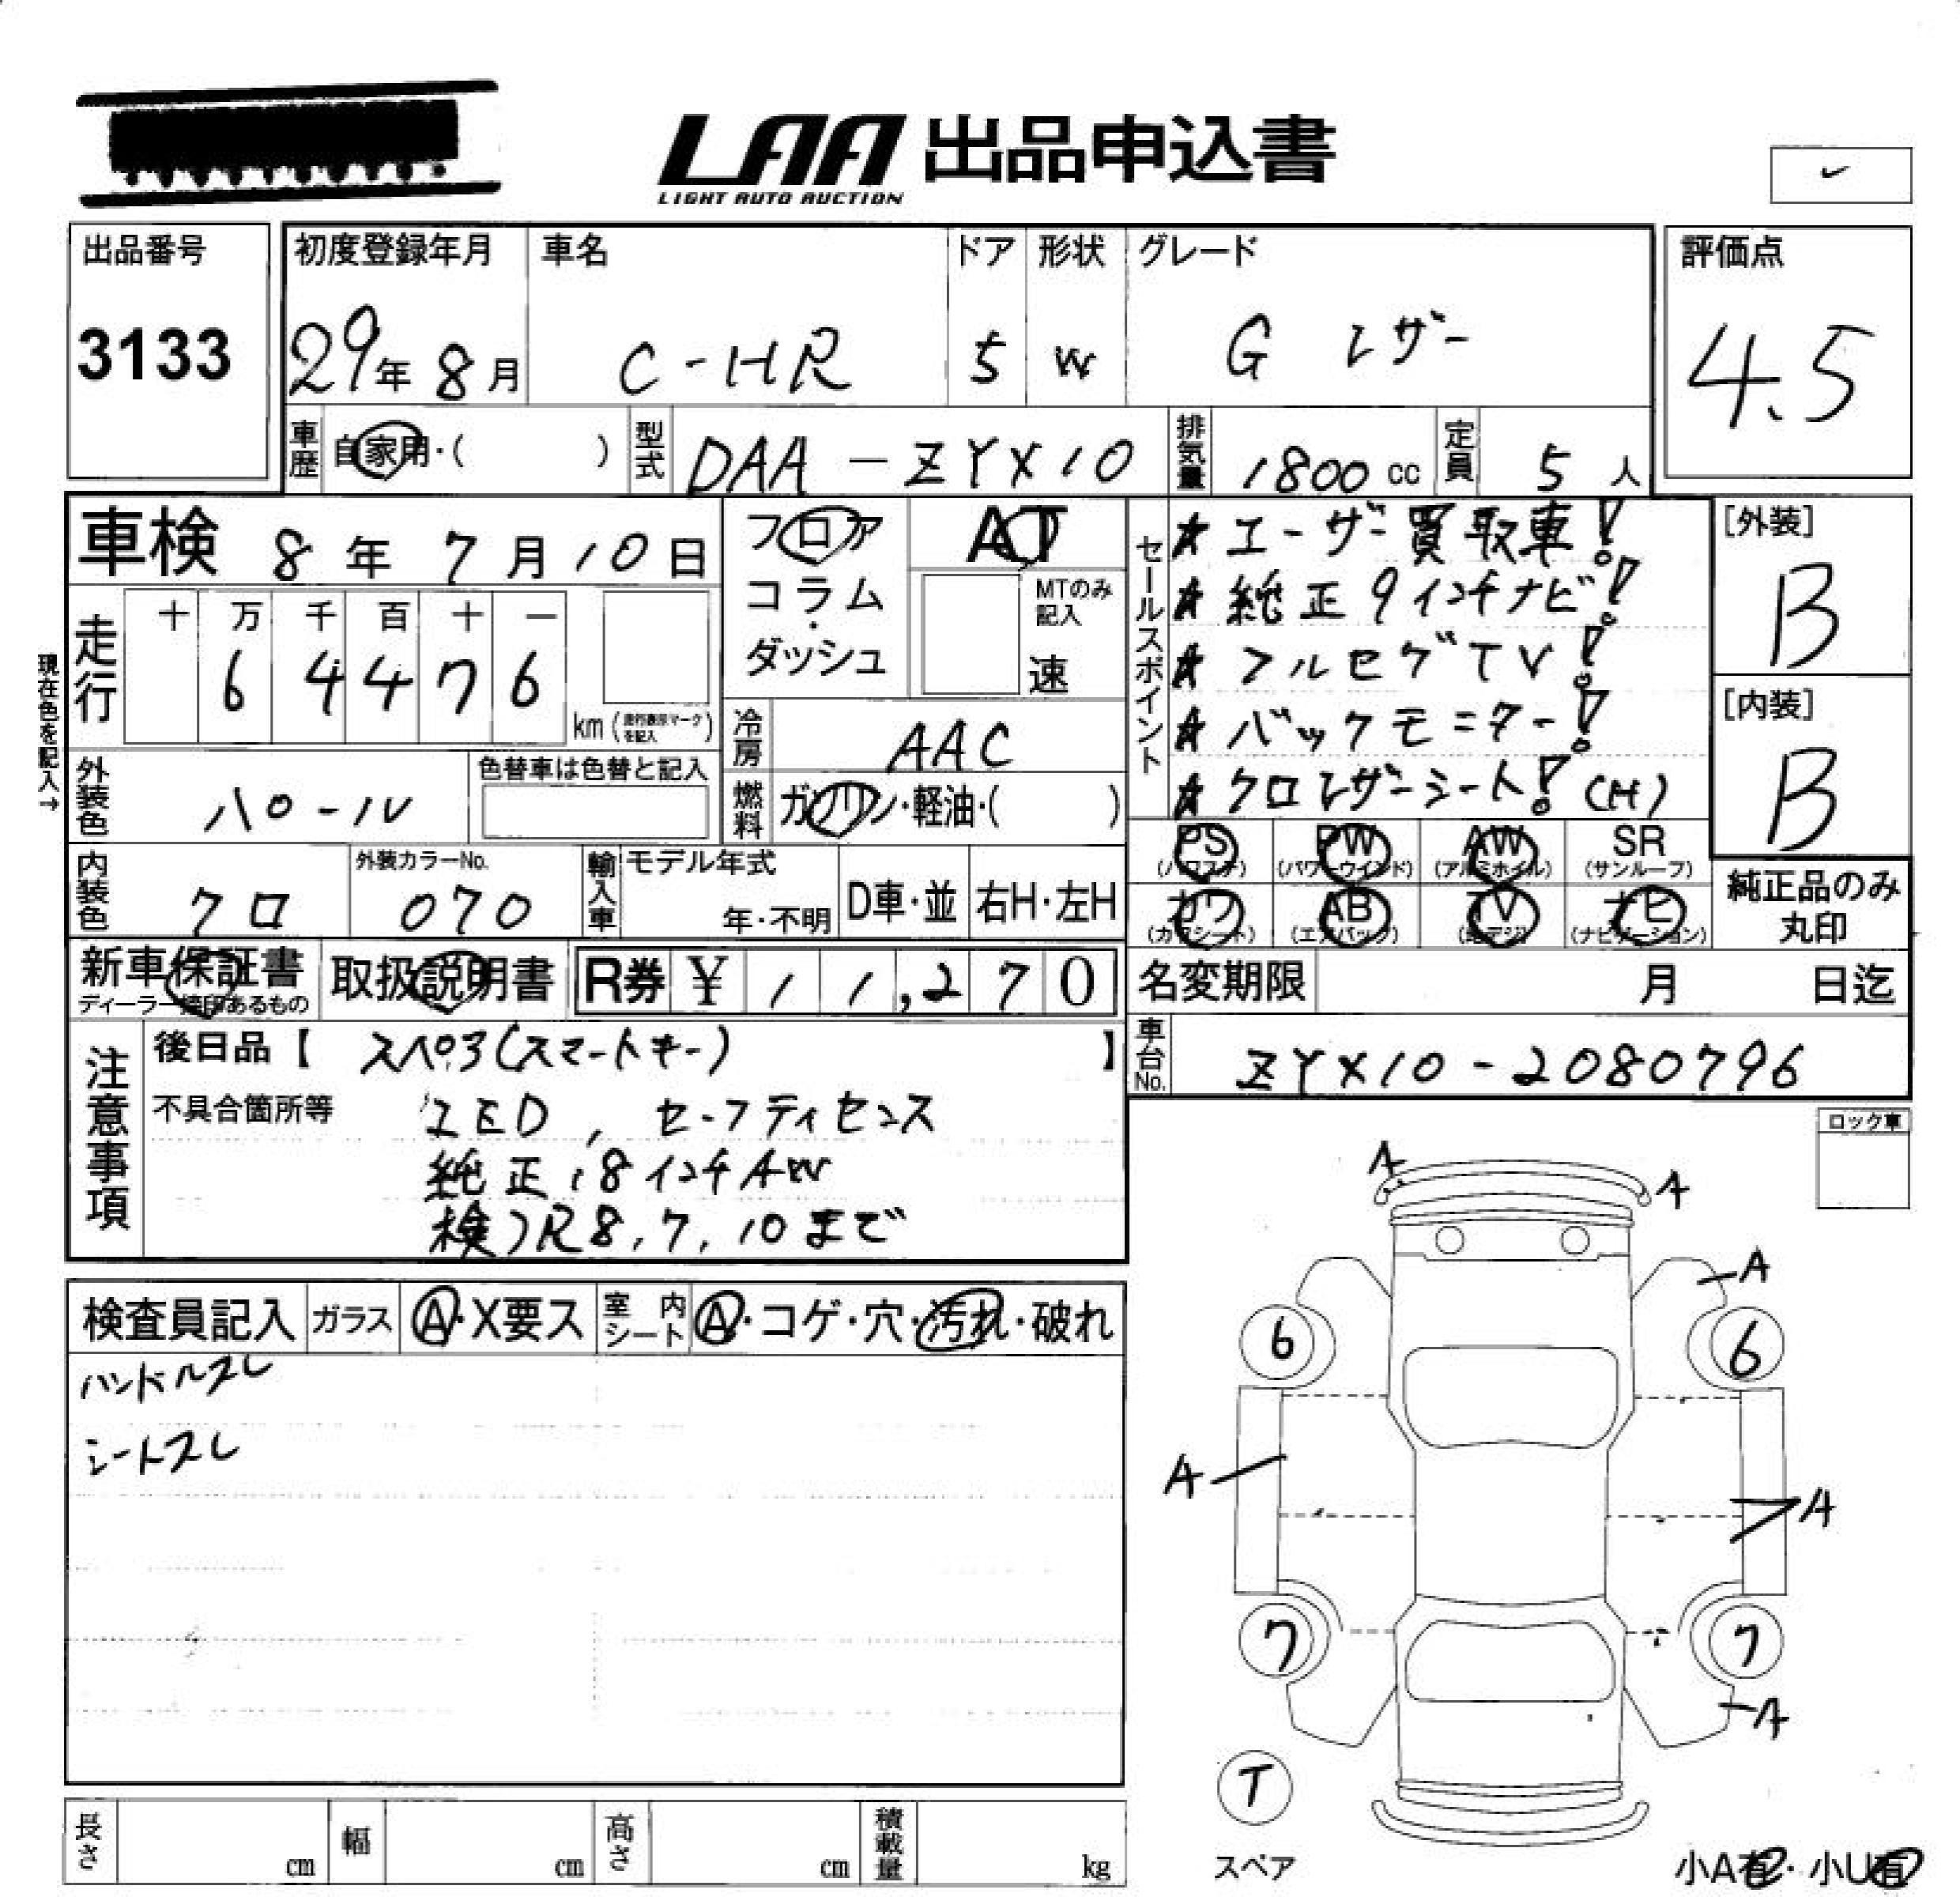 LAA 出品申込書
LIGHT AUTO AUCTION
出品番号
3133
初度登録年月
29年 8月
車名
C-HR
ドア
5
形状
W
グレード
G レザー
評価点
4.5
車歴 自家用・( )
型式 DAA-ZYX10
排気量 1800 cc
定員 5 人
車検 8 年 7 月 10 日
フロア
コラム
・
ダッシュ
AT
MTのみ記入
速
現在色を記入→
走行
十 万 千 百 十 一
6 4 4 7 6
km (走行表示マークを記入)
冷房 AAC
燃料 ガソリン・軽油・( )
外装色 パール
色替車は色替と記入
内装色 クロ
外装カラーNo.
070
輸入車
モデル年式
年・不明
D車・並
右H・左H
セールスポイント
★ユーザー買取車!
★純正9インチナビ!
★フルセグTV!
★バックモニター!
★クロレザーシート!(H)
[外装]
B
[内装]
B
PS (パワステ)
PW (パワーウインド)
AW (アルミホイル)
SR (サンルーフ)
カワ (カワシート)
AB (エアバック)
TV (地デジ)
ナビ (ナビゲーション)
純正品のみ丸印
新車保証書
ディーラー捺印あるもの
取扱説明書
R券 ¥ 11,270
名変期限 月 日迄
車台No. ZYX10-2080796
注意事項
後日品【 スペ3(スマートキー) 】
不具合箇所等
LED, セーフティセンス
純正18インチAW
検)R8,7,10まで
ロック車
検査員記入
ガラス A・X要ス
室内シート A・コゲ・穴・汚れ・破れ
ハンドルスレ
シートスレ
A
A
A
6
6
A
A
7
7
A
T
スペア
小A有・小U有
長さ cm
幅 cm
高さ cm
積載量 kg